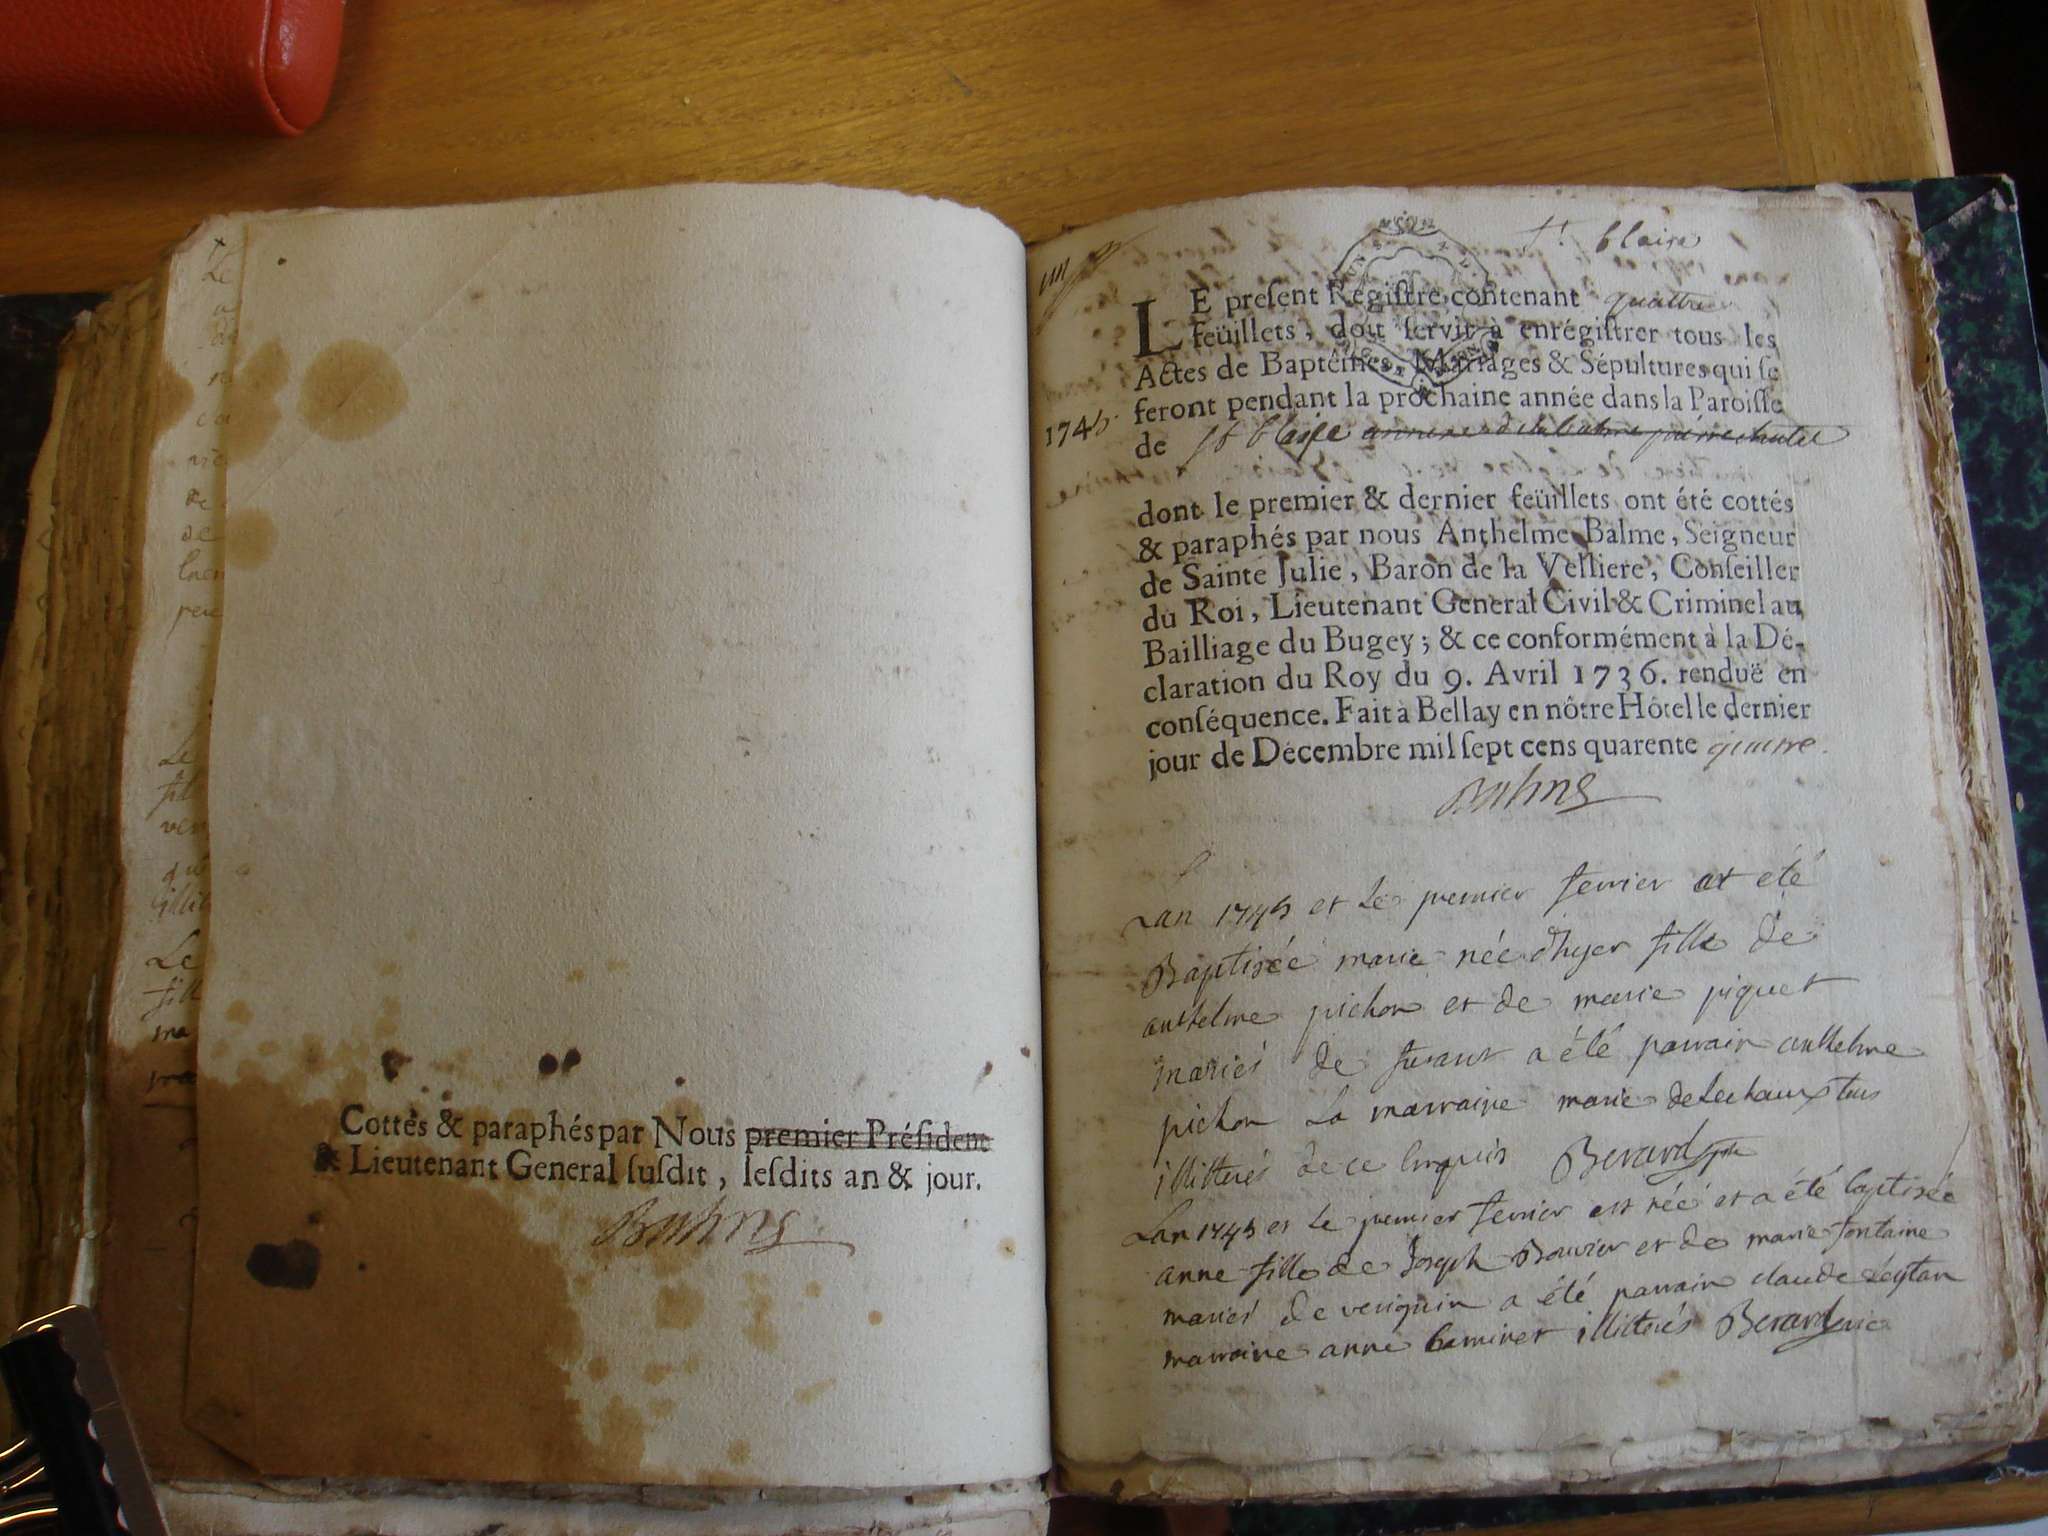 Cottés & paraphés par Nous premier Président
& Lieutenant General susdit, lesdits an & jour.
St. blaise
LE present Régistre, contenant quattre
feüillets, doit servir à enrégistrer tous les
Actes de Baptêmes, Mariages & Sépultures qui se
feront pendant la prochaine année dans la Paroisse
1745.
de St blaise
dont le premier & dernier feüillets ont été cottés
& paraphés par nous Anthelme Balme, Seigneur
de Sainte Julie, Baron de la Velliere, Conseiller
du Roi, Lieutenant General Civil & Criminel au
Bailliage du Bugey; & ce conformément à la Dé-
claration du Roy du 9. Avril 1736. renduë en
conséquence. Fait à Bellay en nôtre Hôtel le dernier
jour de Décembre mil sept cens quarente quatre.
Lan 1745 et Le premier fevrier at été
Baptisée marie née d'hyer fille de
anthelme pichon et de marie piquet
mariés de a été parrain anthelme
pichon La marraine marie delechaux tous
illitterés de ce enquis Berard
Lan 1745 et Le premier fevrier est née et a été baptisée
anne fille de Joseph Bouvier et de marie fontaine
mariés de a été parrain claude
marraine anne illitterés Berard